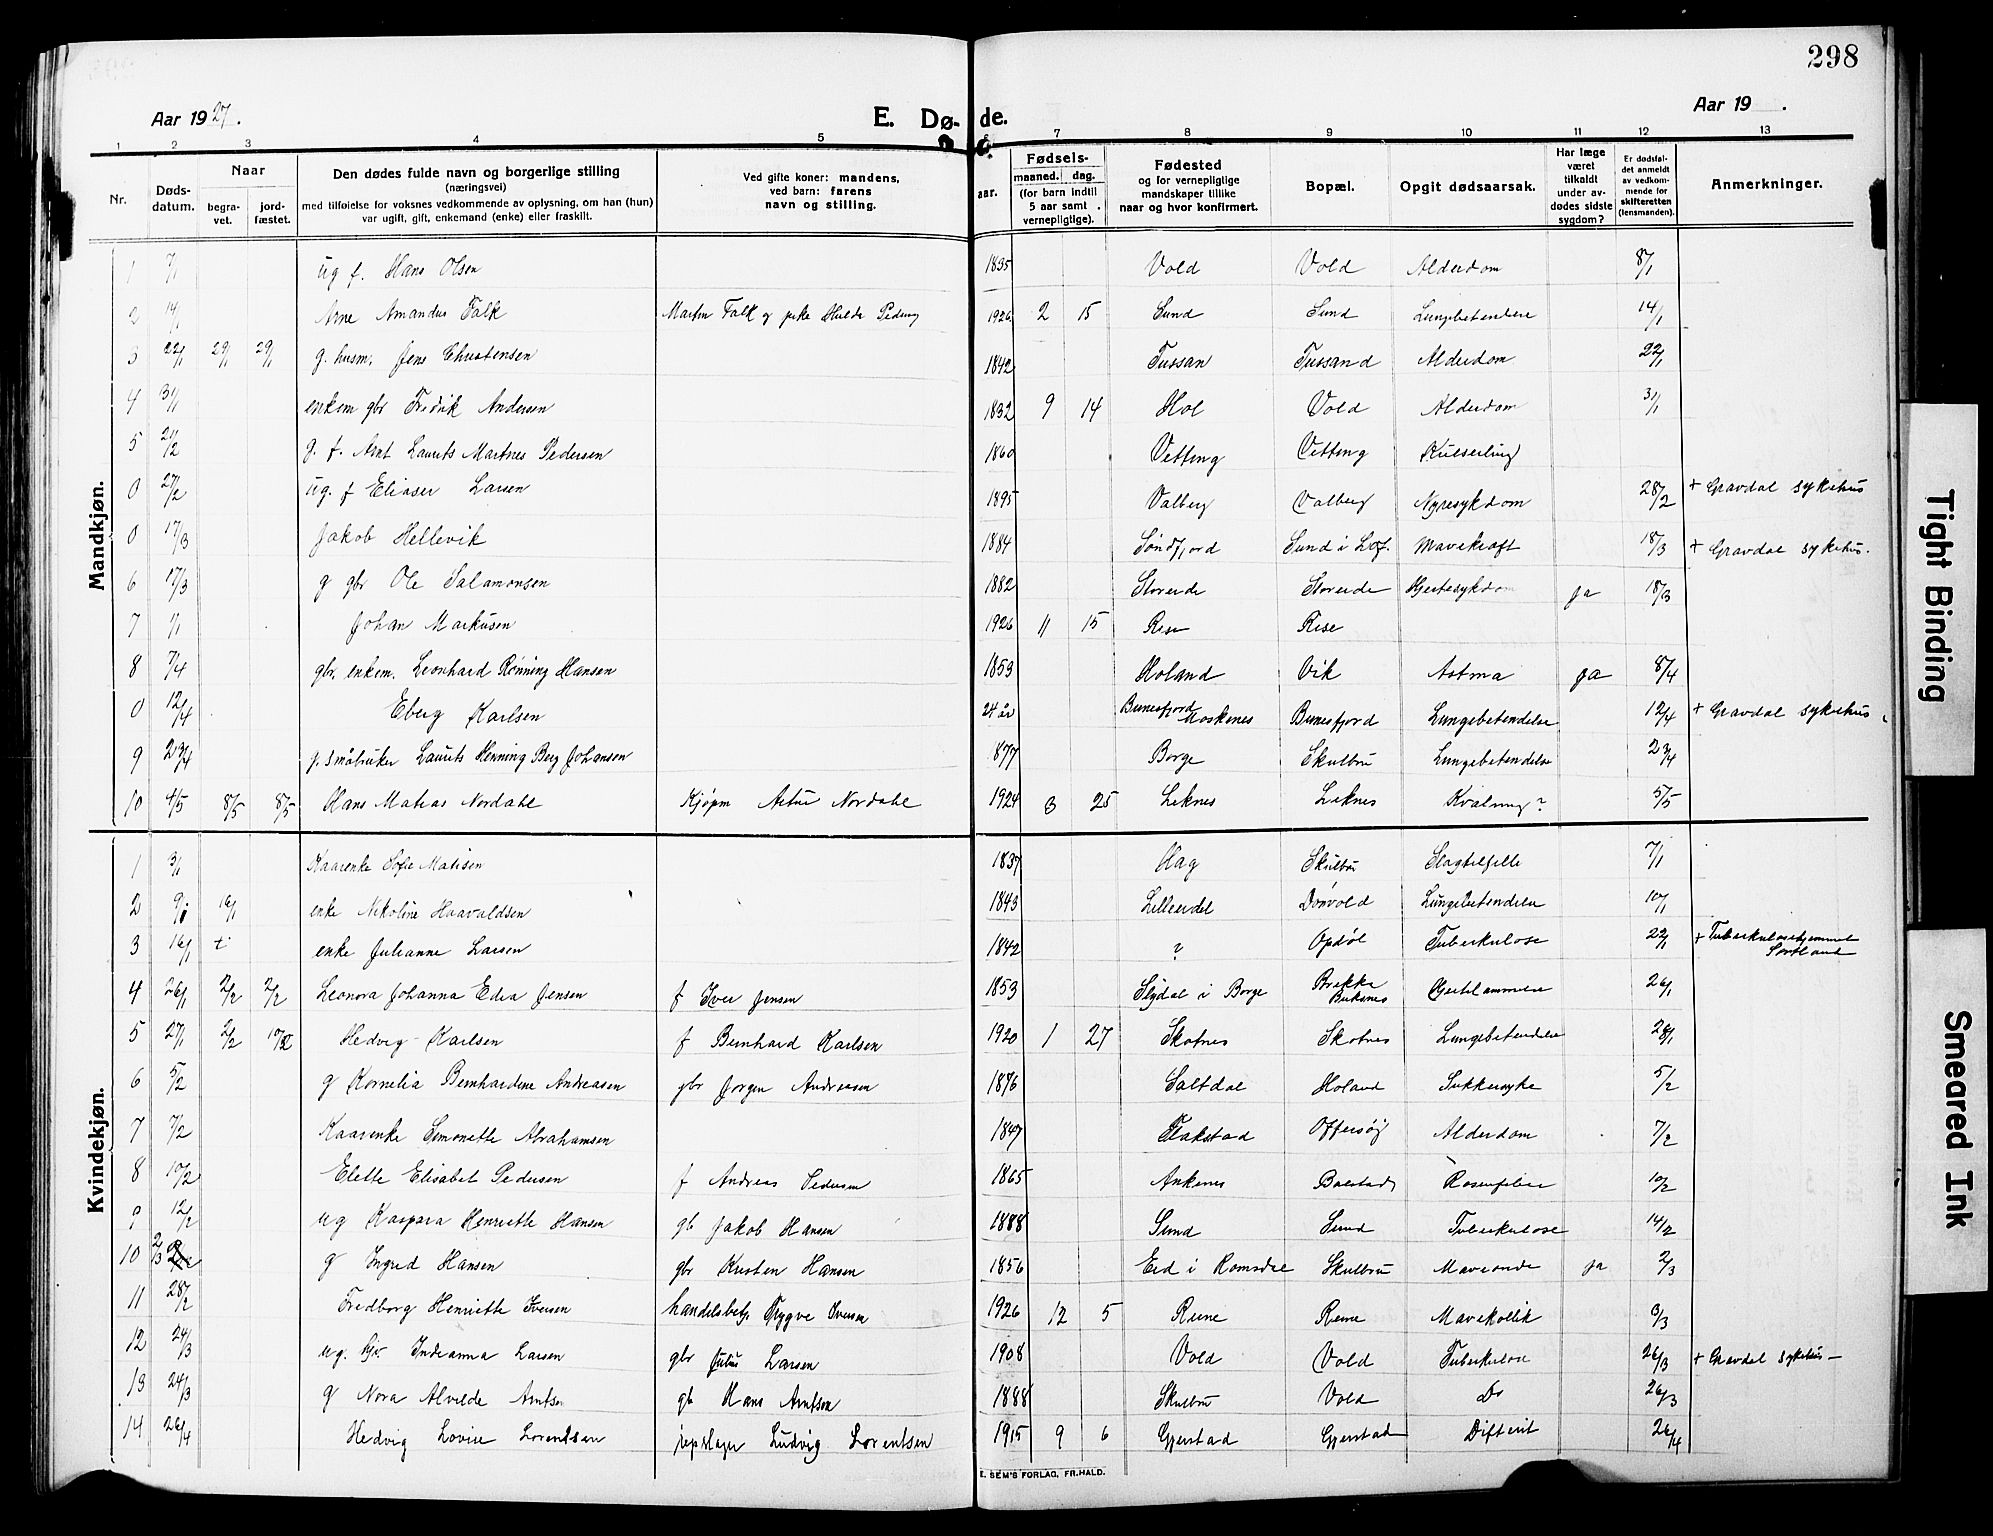 298
Aar 1927.
E. Dø- de.
Aar 19 .
1 2 3 4 5 6 7 8 9 10 11 12 13
Nr.
Døds-
datum.
Naar
begra-
vet.
jord-
fæstet.
Den dødes fulde navn og borgerlige stilling
(næringsvei)
med tilføielse for voksnes vedkommende av oplysning, om han (hun)
var ugift, gift, enkemand (enke) eller fraskilt.
Ved gifte koner: mandens,
ved barn: farens
navn og stilling.
aar.
Fødsels-
maaned. dag.
(for barn indtil
5 aar samt
vernepligtige).
Fødested
og for vernepligtige
mandskaper tillike
naar og hvor konfirmert.
Bopæl.
Opgit dødsaarsak.
Har læge
været
tilkaldt
under av-
dødes sidste
sygdom?
Er dødsfal-
det anmeldt
av vedkom-
mende for
skifteretten
(lensmanden).
Anmerkninger.
Mandkjøn.
1 7/1 ug f. Hans Olsen 1835 Vold Vold Alderdom 8/1
2 14/1 Arne Amandus Falk Martin Falk og pike Hulda 1926 2 15 Sund Sund 14/1
3 22/1 29/1 29/1 g. husm. Jens Christensen 1842 Tussan Tussand Alderdom 22/1
4 31/1 enkem gbr Fredrik Andersen 1832 9 14 Hol Vold Alderdom 31/1
5 21/2 g. f. Arnt Laurits Martnes Pedersen 1860 Vetting Vetting
0 27/2 ug. f Eliaser Larsen 1895 Valberg Valberg Nyresykdom 28/2 + Gravdal sykehus
0 17/3 Jakob Hellevik 1884 Søndfjord Sund i Lof. Mavekræft 18/3 + Gravdal sykehus.
6 17/3 g gbr Ole Salamonsen 1882 Storeide Storeide Hjertesykdom ja 18/3
7 1/1 Johan Markusen 1926 11 15 Rise Rise
8 7/4 gbr. enkem. Leonhard Rønning Hansen 1853 Holand Vik Astma ja 8/4
0 12/4 Eberg Karlsen 24 år Bunesfjord Moskenes Bunesfjord Lungebetendelse 12/4 + Gravdal sykehus
9 23/4 g. småbruker Laurits Henning Berg Johansen 1877 Borge Skulbru Lungebetendelse 23/4
10 4/5 8/5 8/5 Hans Matias Nordahl Kjøpm Artur Nordahl 1924 3 25 Leknes Leknes Kvælning? 5/5
Kvindekjøn.
1 3/1 Kaarenke Sofie Matisen 1837 Hag Skulbru Slagtilfelle 7/1
2 9/1 16/1 enke Nikoline Haavaldsen 1843 Lilleeidet Lungebetendelse 10/1
3 16/1 + enke Julianne Larsen 1842 ? Opdøl Tuberkulose 22/1 + Tuberkulosehjemmet Sortland
4 26/1 2/2 2/2 Leonora Johanna Edea Jensen f Iver Jensen 1853 Slydal i Borge Brekke Buksnes 26/1
5 27/1 2/2 Hedvig Karlsen f Bernhard Karlsen 1920 1 27 Skotnes Skotnes Lungebetendelse 28/1
6 5/2 g Kornelia Bernhardine Andreasen gbr Jørgen Andreasen 1876 Saltdal Holand Sukkersyke 5/2
7 7/2 Kaarenke Simonette Abrahamsen 1847 Flakstad Offersøy Alderdom 7/2
8 10/2 Elette Elisabet Pedersen f Andreas Pedersen 1865 Ankenes Balstad Rosenfeber 10/2
9 12/2 ug Kaspara Henriette Hansen gb Jakob Hansen 1888 Sund Sund Tuberkulose 14/2
10 2/3 g Ingrid Hansen gbr Kristen Hansen 1856 Eid i Romsdal Skulbru Maveonde ja 2/3
11 28/2 Fredborg Henriette Iversen handelsbetj. Trygve Iversen 1926 12 5 Reine Reine Mavekollik 3/3
12 24/3 ug. Indianna Larsen gbr Julius Larsen 1908 Vold Vold Tuberkulose 26/3 + Gravdal sykehus —
13 24/3 g Nora Alvilde Arntsen gb Hans Arntsen 1888 Skulbru Vold Do 26/3
14 26/4 Hedvig Lovise Lorentsen repslager Ludvig Lorentsen 1915 9 6 Gjerstad Gjerstad Difterit 26/4
E. SEM'S FORLAG, FR.HALD.
Tight Binding
Smeared Ink